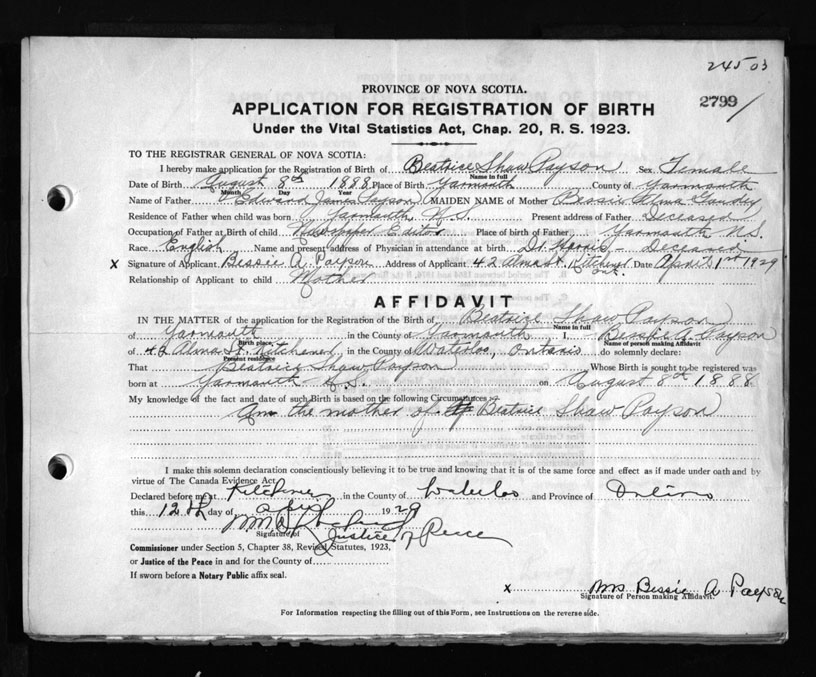 24503
PROVINCE OF NOVA SCOTIA.
2799
APPLICATION FOR REGISTRATION OF BIRTH
Under the Vital Statistics Act, Chap. 20, R. S. 1923.
TO THE REGISTRAR GENERAL OF NOVA SCOTIA:
I hereby make application for the Registration of Birth of Beatrice Shaw Payson Sex Female
Name in full
Date of Birth August 8th 1888 Place of Birth Yarmouth County of Yarmouth
Month Day Year
Name of Father Edward James Payson MAIDEN NAME of Mother Bessie Alma
Residence of Father when child was born Yarmouth, N.S. Present address of Father Deceased
Occupation of Father at Birth of child Newspaper Editor Place of birth of Father Yarmouth N.S.
Race English Name and present address of Physician in attendance at birth Dr. Harris - Deceased
x Signature of Applicant Bessie A. Payson Address of Applicant 42 Alma St. Kitchener Ont. Date April 1st 1929
Relationship of Applicant to child Mother
AFFIDAVIT
IN THE MATTER of the application for the Registration of the Birth of Beatrice Shaw Payson
Name in full
of Yarmouth in the County of Yarmouth I, Bessie A. Payson
Birth place, Name of person making Affidavit
of 42 Alma St. Kitchener, in the County of Waterloo, Ontario do solemnly declare:
Present residence
That Beatrice Shaw Payson Whose Birth is sought to be registered was
born at Yarmouth N.S. on August 8th 1888
My knowledge of the fact and date of such Birth is based on the following Circumstances
Am the mother of Beatrice Shaw Payson
I make this solemn declaration conscientiously believing it to be true and knowing that it is of the same force and effect as if made under oath and by
virtue of The Canada Evidence Act.
Declared before me at Kitchener in the County of Waterloo and Province of Ontario
this 12th day of April 1929
Signature of
Justice of Peace
Commissioner under Section 5, Chapter 38, Revised Statutes, 1923,
or Justice of the Peace in and for the County of
If sworn before a Notary Public affix seal.
x Mrs Bessie A Payson
Signature of Person making Affidavit.
For Information respecting the filling out of this Form, see Instructions on the reverse side.